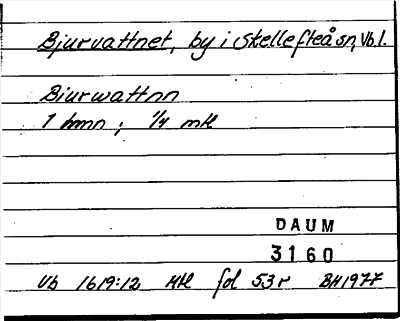 Bjurvattnet, by i Skellefteå sn, Vb.l.
Biurwattnn
1 hmn ; 1/4 mtl
DAUM
3160
Vb 1619:12 Mtl fol 53r BH1977